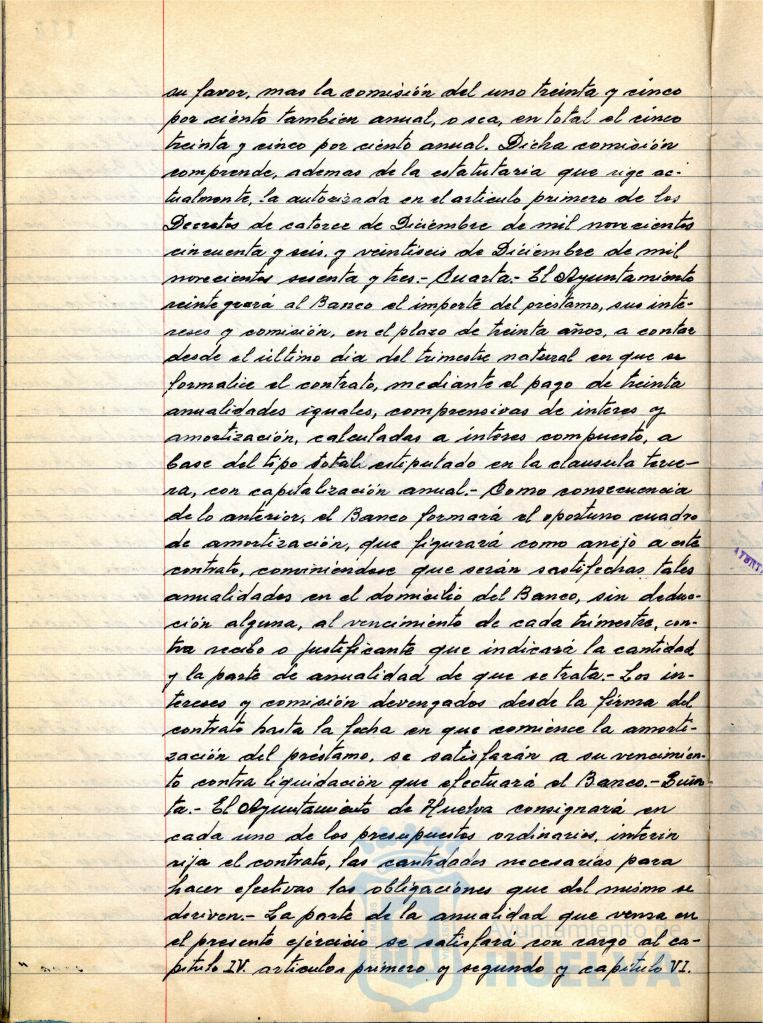 su favor, mas la comisión del uno treinta y cinco
por ciento tambien anual, o sea, en total el cinco
treinta y cinco por ciento anual. Dicha comisión
comprende, ademas de la estatutaria que rige ac-
tualmente, la autorizada en el articulo primero de los
Decretos de catorce de Diciembre de mil novecientos
cincuenta y seis, y veintiseis de Diciembre de mil
novecientos sesenta y tres.- Cuarta.- El Ayuntamiento
reintegrará al Banco el importe del prestamo, sus inte-
reses y comisión, en el plazo de treinta años, a contar
desde el último dia del trimestre natural en que se
formalice el contrato, mediante el pago de treinta
anualidades iguales, comprensivas de interes y
amortización, calculadas a interes compuesto, a
base del tipo total estipulado en la clausula terce-
ra, con capitalización anual.- Como consecuencia
de lo anterior, el Banco formará el oportuno cuadro
de amortización, que figurará como anejo a este
contrato, conviniéndose que serán sastifechas tales
anualidades en el domicilio del Banco, sin deduc-
ción alguna, al vencimiento de cada trimestre, con-
tra recibo o justificante que indicará la cantidad
y la parte de anualidad de que se trata.- Los in-
tereses y comisión devengados desde la firma del
contrato hasta la fecha en que comience la amorti-
zación del préstamo, se satisfarán a su vencimien-
to contra liquidación que efectuará el Banco.- Quin-
ta.- El Ayuntamiento de Huelva consignará en
cada uno de los presupuestos ordinarios, interin
rija el contrato, las cantidades necesarias para
hacer efectivas las obligaciones que del mismo se
deriven.- La parte de la anualidad que venza en
el presente ejercicio se satisfará con cargo al ca-
pitulo IV. articulos primero y segundo y capitulo VI.
Ayuntamiento de
HUELVA